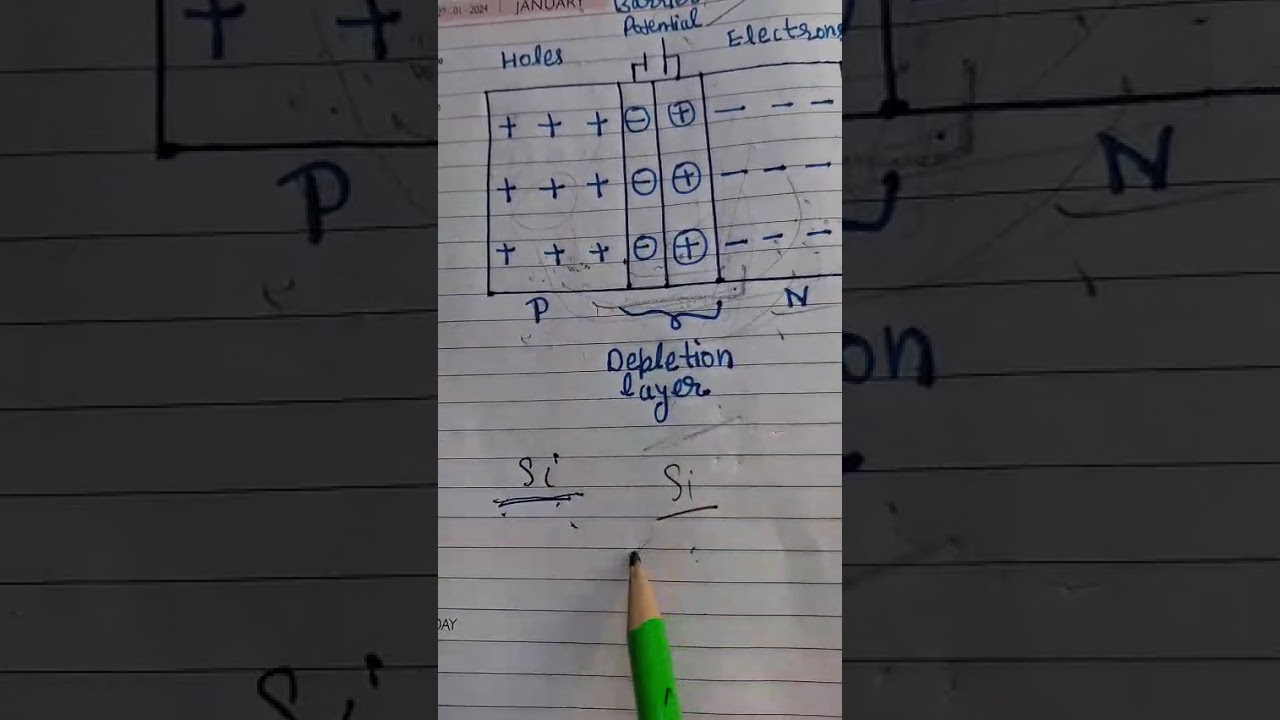 27-01-2024 | JANUARY
Barrier
Potential
Holes
Electrons
+ + + ⊖ ⊕ − − −
+ + + ⊖ ⊕ − − −
+ + + ⊖ ⊕ − − −
P
N
Depletion
layer
Si
Si
DAY